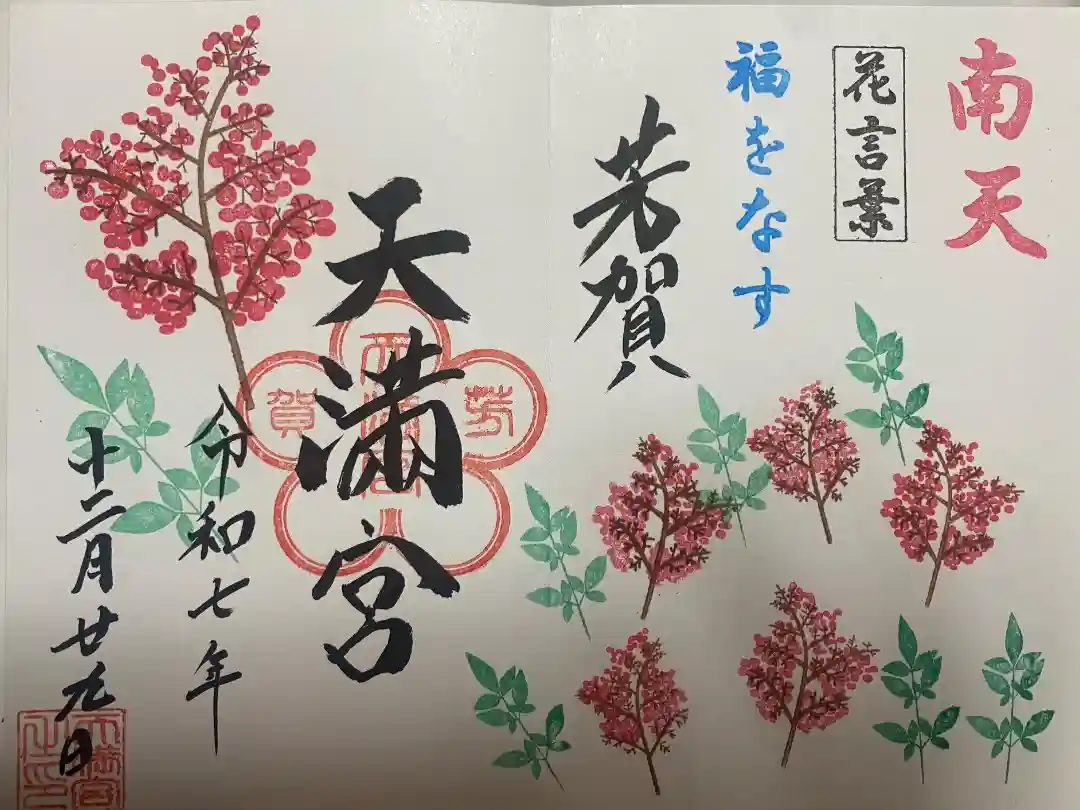 南天
花言葉
福をなす
芳賀
天満宮
芳
賀
令和七年
十二月廿九日